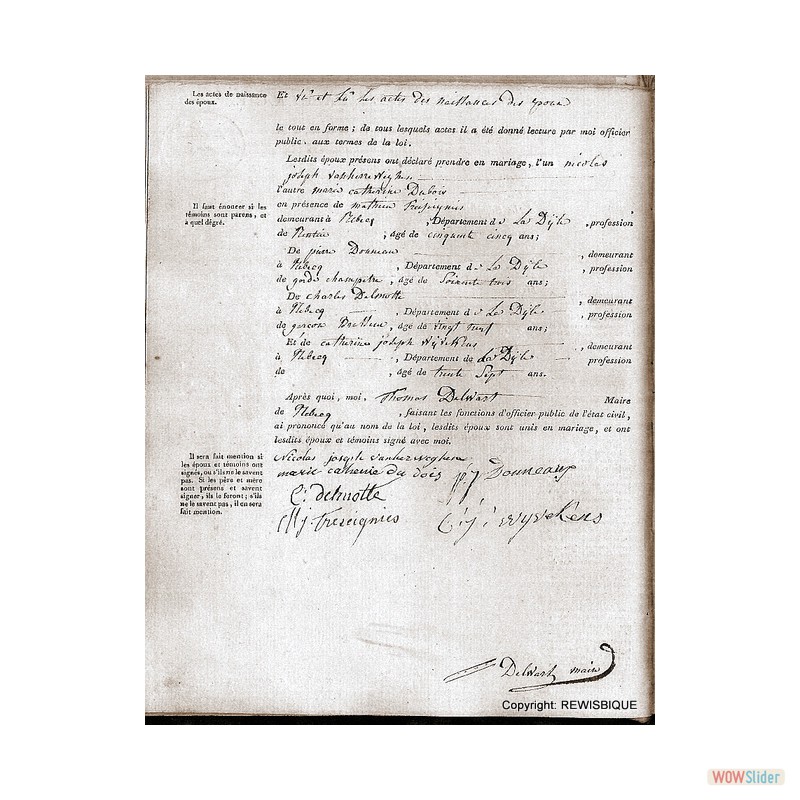 Les actes de naissance
des époux.
Et Vu et lu les actes des naissances des epoux
le tout en forme ; de tous lesquels actes il a été donné lecture par moi officier
public, aux termes de la loi.
Lesdits époux présens ont déclaré prendre en mariage, l'un nicolas
joseph vanherreweghen
l'autre marie catherine Dubois
Il faut énoncer si les
témoins sont parens, et
à quel dégré.
en présence de mathieu
demeurant à Rebecq , Département de La Dyle , profession
de , âgé de cinquante cinq ans ;
De pierre Donneau , demeurant
à Rebecq , Département de La Dyle , profession
de garde champetre , âgé de Soixante trois ans ;
De charles Delmotte , demeurant
à Rebecq , Département de La Dyle , profession
de garcon Brasseur , âgé de vingt neuf ans ;
Et de catherine joseph Wyvekens , demeurant
à Rebecq , Département de La Dyle profession
de , âgé de trente Sept ans.
Après quoi, moi, Thomas Delwart Maire
de Rebecq , faisant les fonctions d'officier public de l'état civil,
ai prononcé qu'au nom de la loi, lesdits époux sont unis en mariage, et ont
lesdits époux et témoins signé avec moi.
Il sera fait mention si
les époux et témoins ont
signés, ou s'ils ne le savent
pas. Si les père et mère
sont présens et savent
signer, ils le feront ; s'ils
ne le savent pas, il en sera
fait mention.
Nicolas joseph vanherweghene
marie catherine du bois pj Donneaux
C: delmotte
Mj. Treseignies C: j: wyvekens
Delwart maire
Copyright: REWISBIQUE
WOWSlider